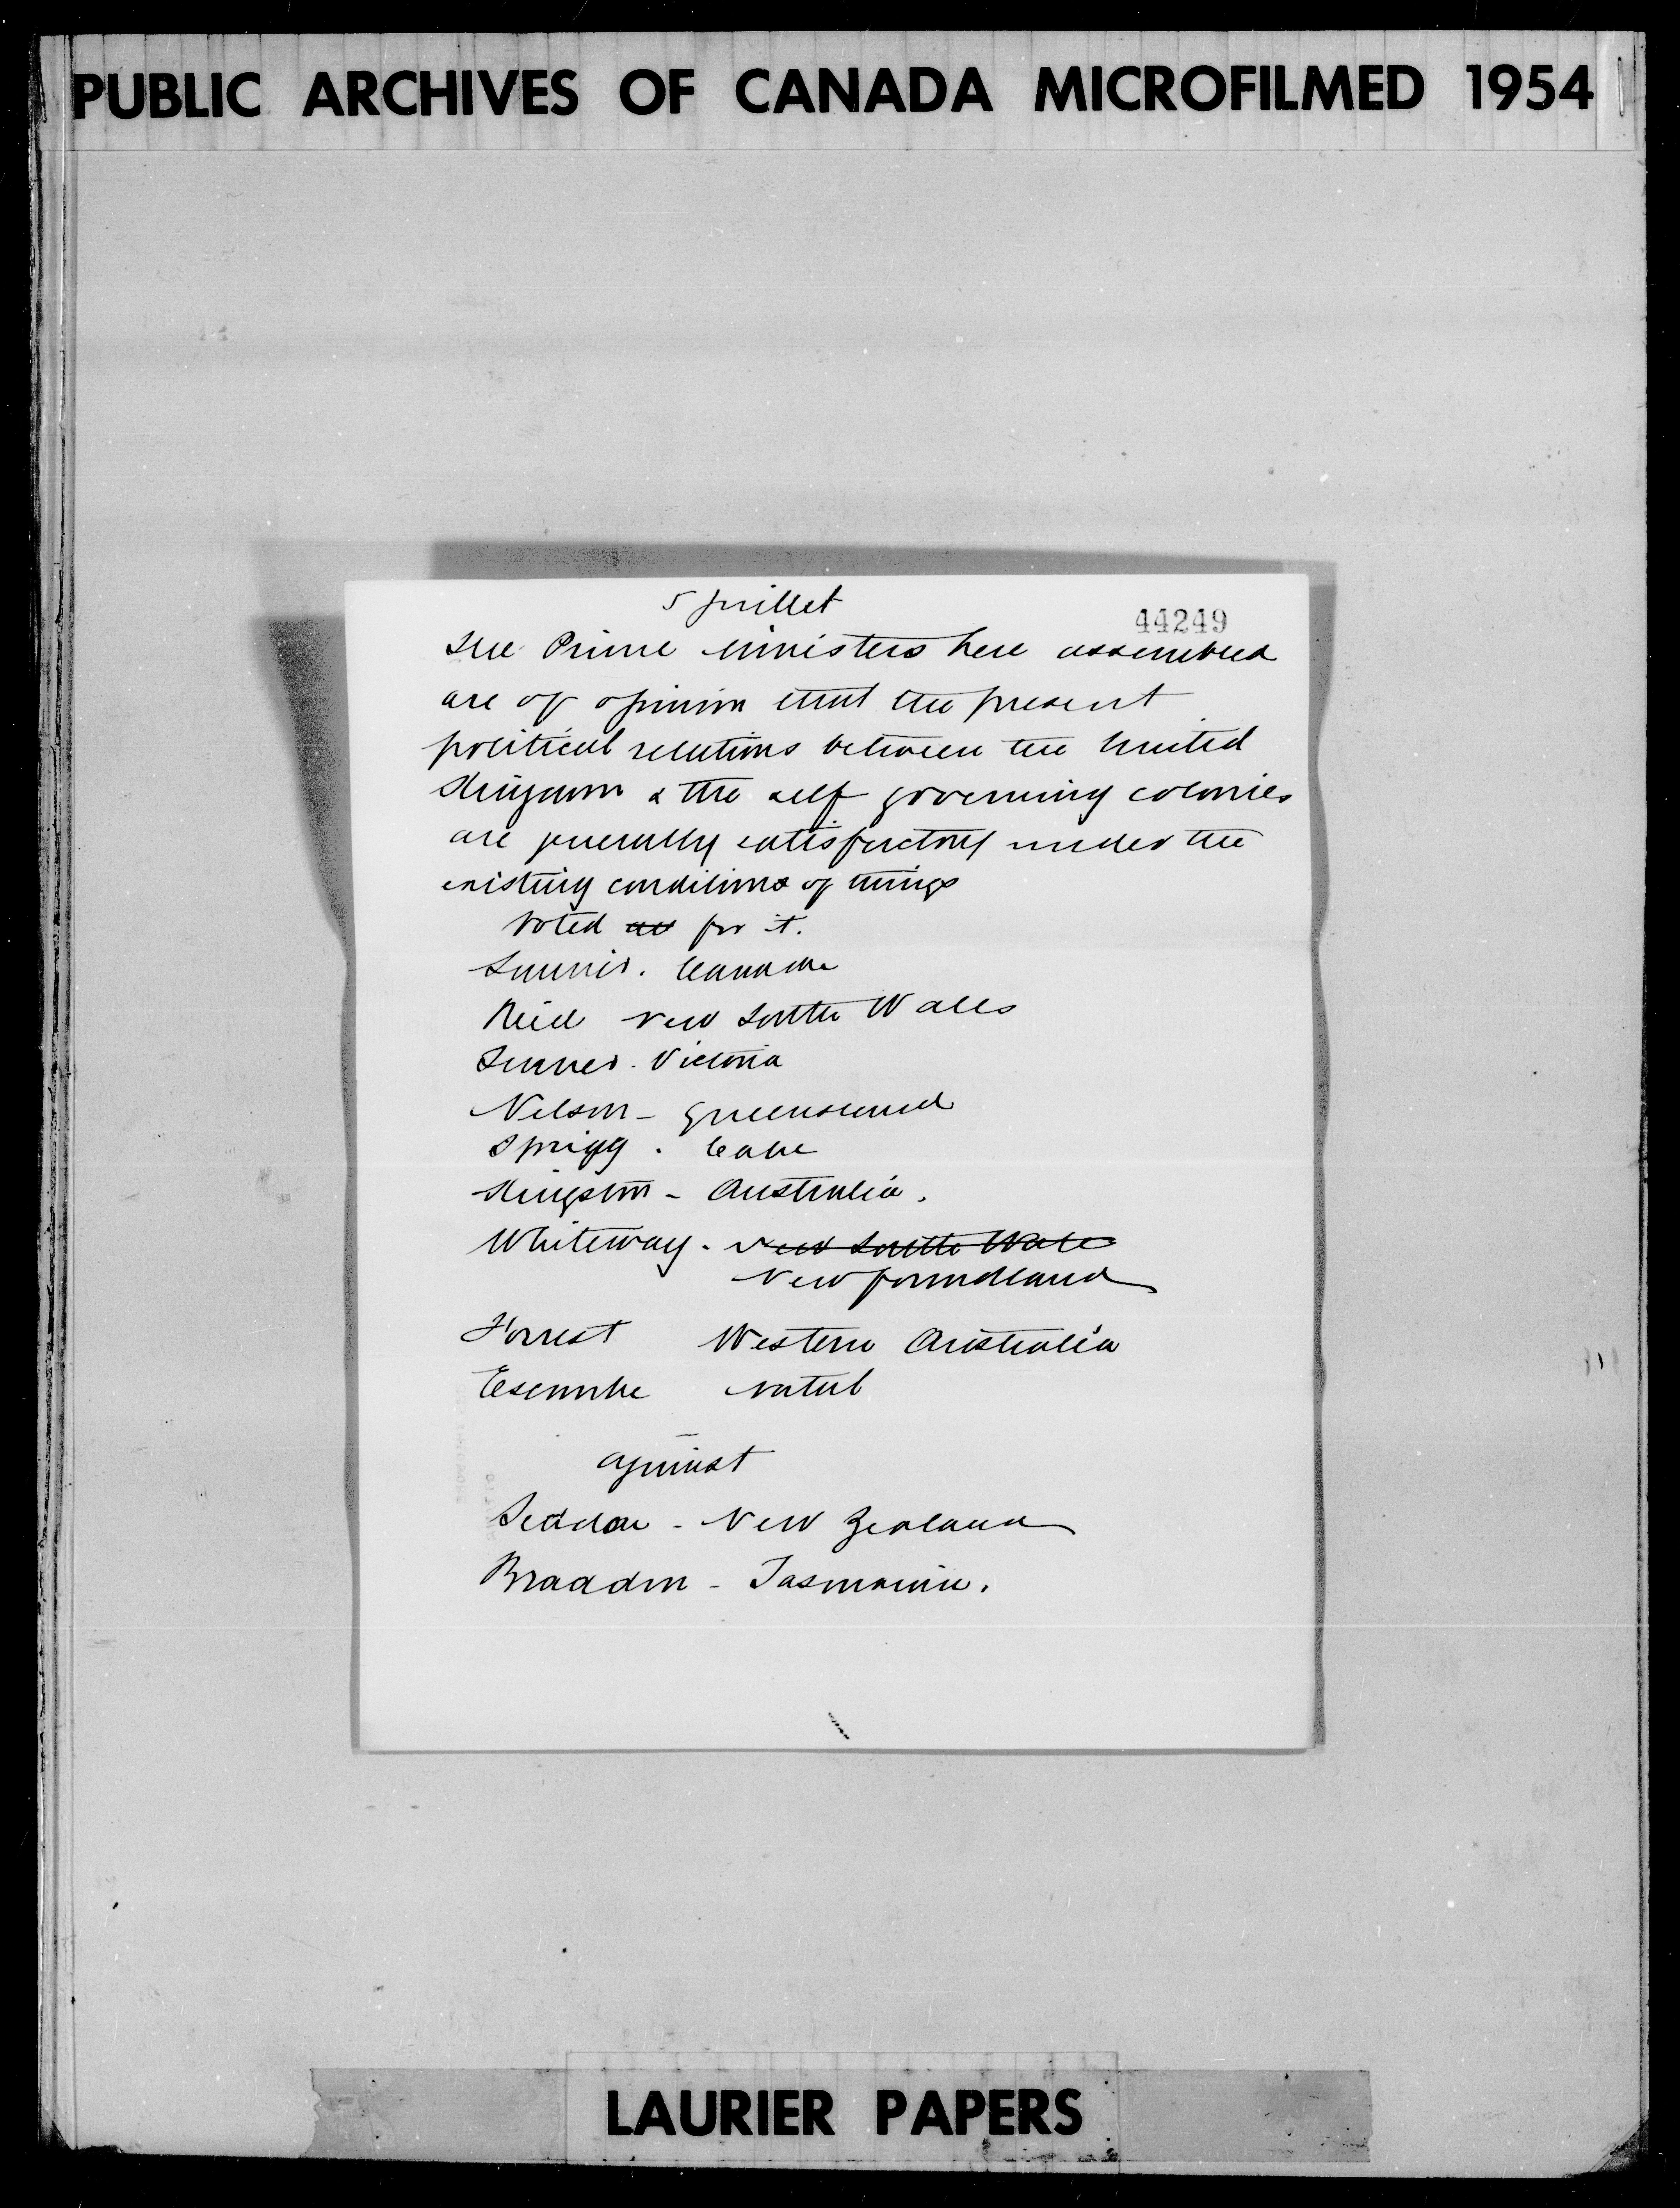 PUBLIC ARCHIVES OF CANADA MICROFILMED 1954
5 juillet
44249
The Prime Ministers here assembled
are of opinion that the present
political relations between the United
Kingdom & the self governing colonies
are generally satisfactory under the
existing conditions of things
Voted for it.
Laurier. Canada
Reid New South Wales
Turner. Victoria
Nelson - Queensland
Sprigg. Cape
Kingston - Australia.
Whiteway. New South Wales
Newfoundland
Forrest Western Australia
Escombe Natal
against
Seddon - New Zealand
Braddon - Tasmania.
LAURIER PAPERS